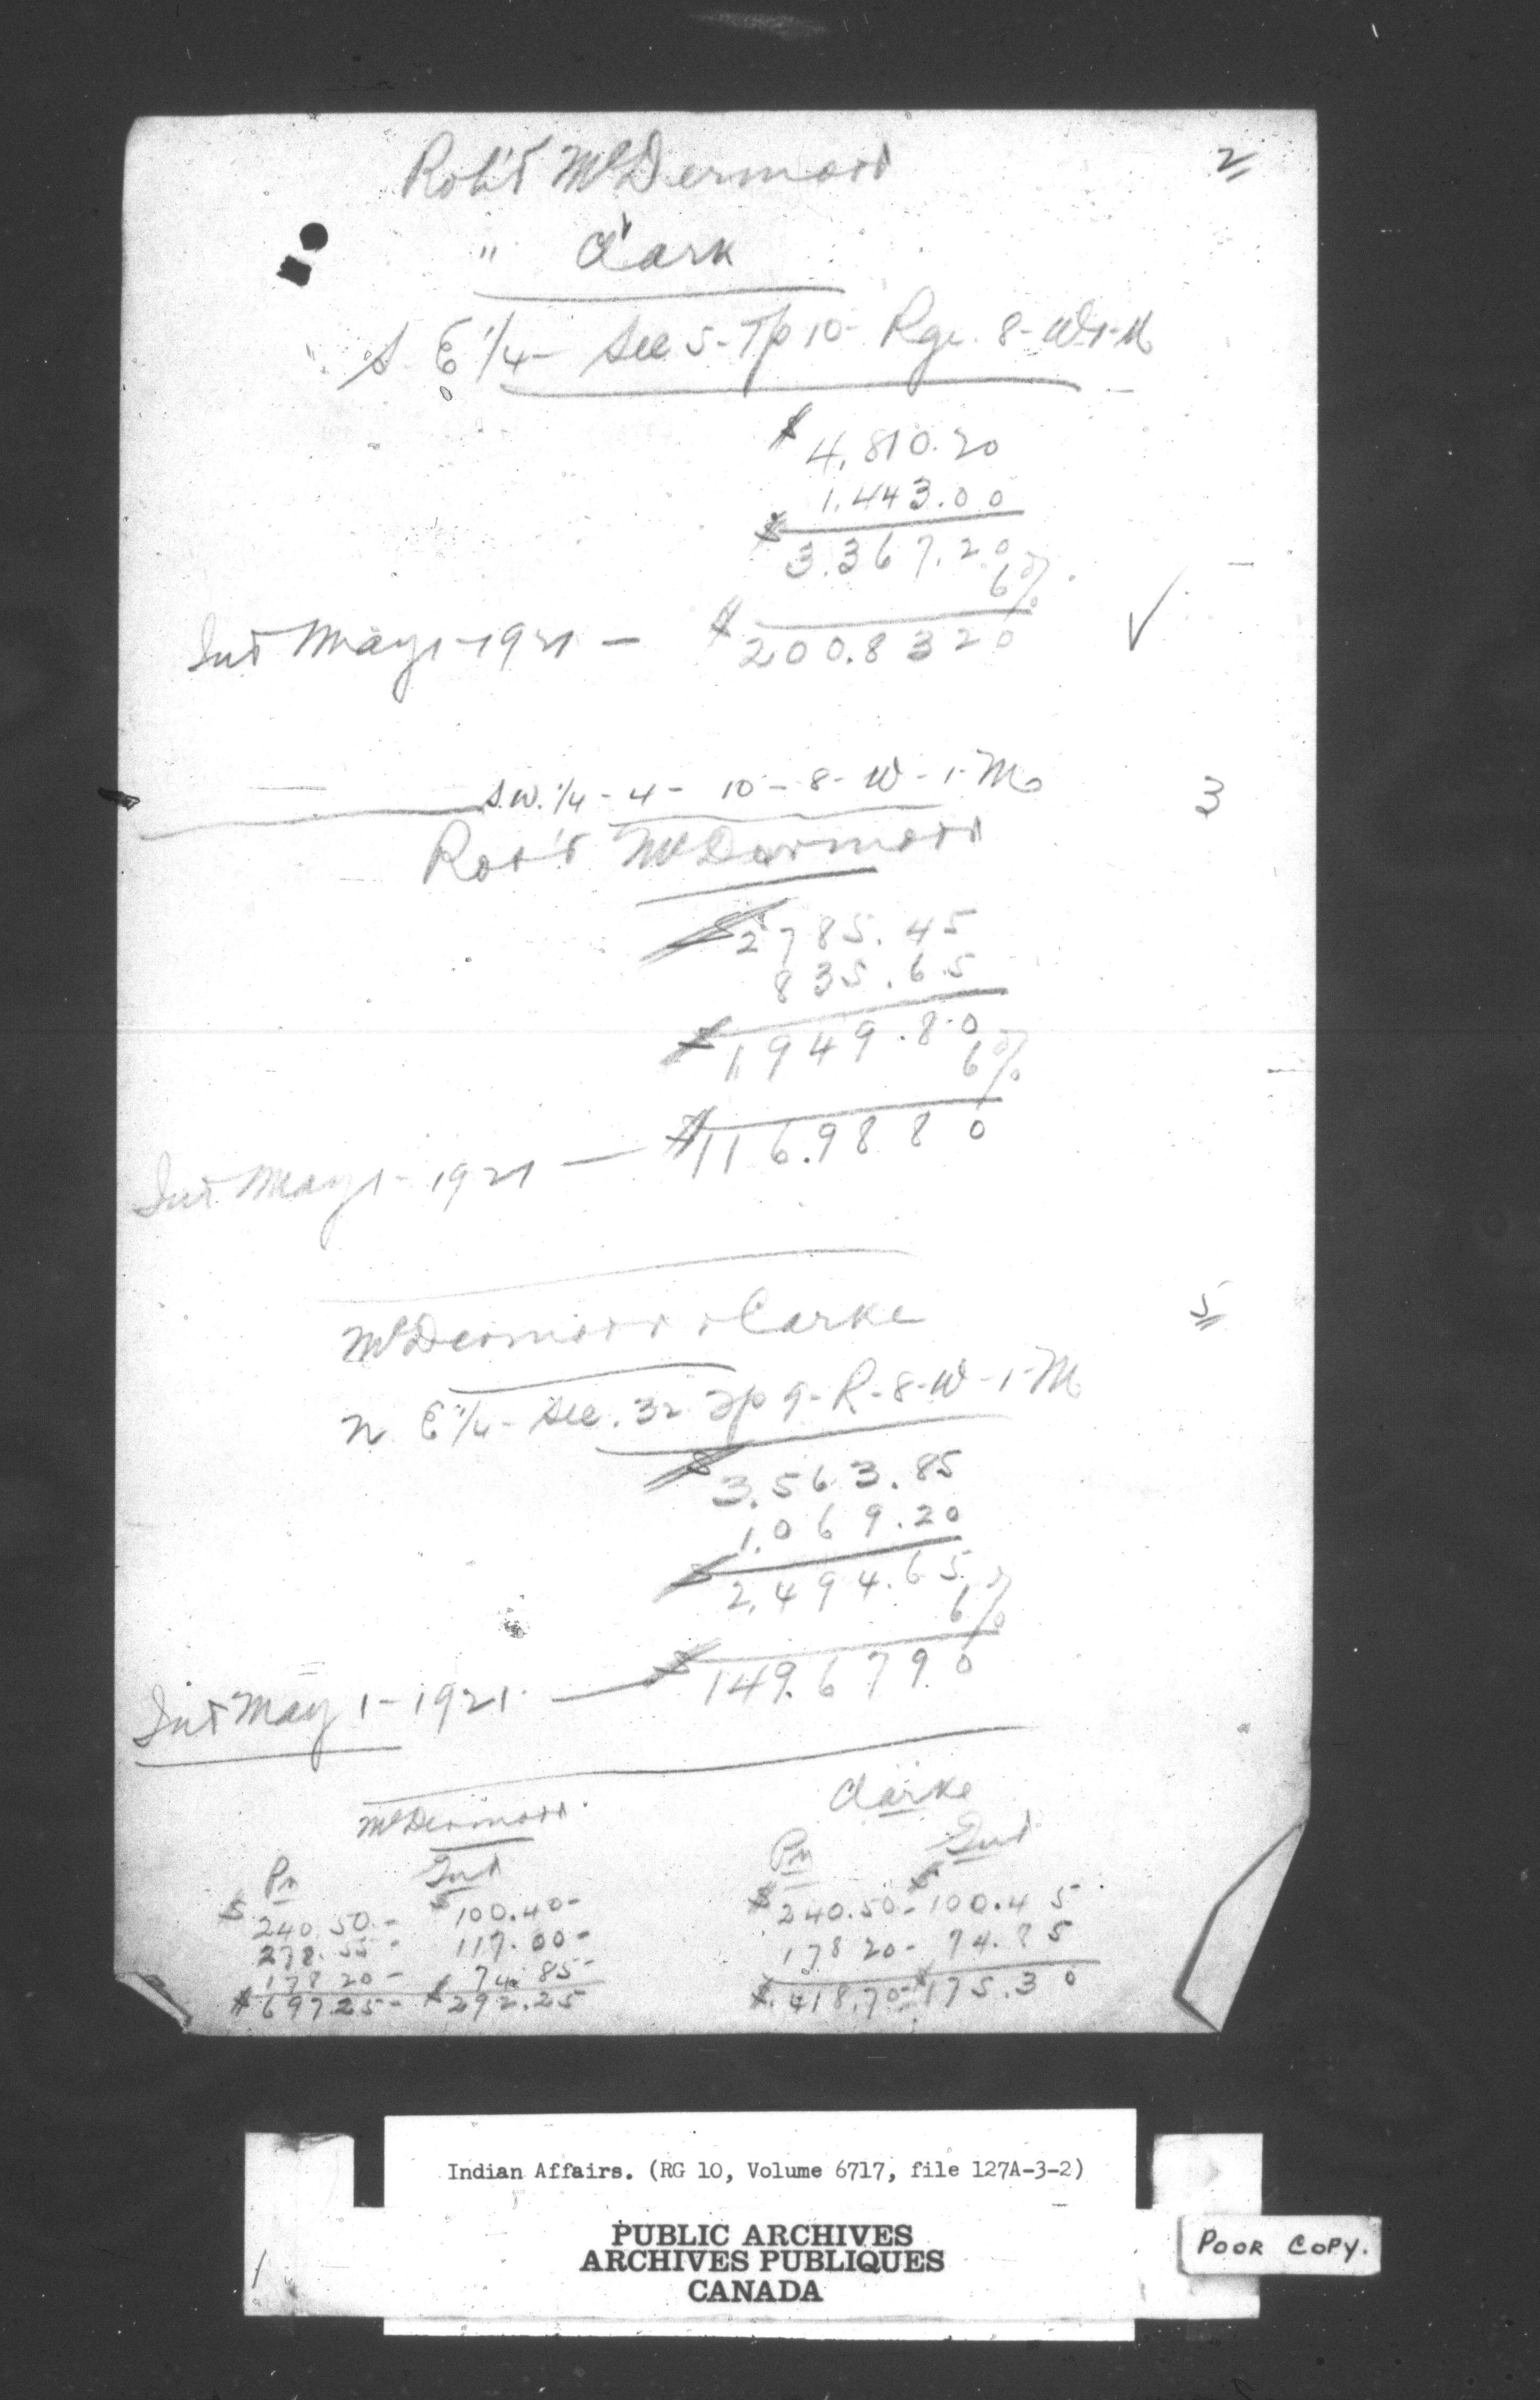 Rob't McDermott
2
" Clark
S. E 1/4 - Sec 5 - Tp 10 - Rge. 8 - W 1 M
$ 4,810.20
1,443.00
$ 3,367.20
6%
Int May 1 - 1921 - $ 200.8320 ✓
S.W. 1/4 - 4 - 10 - 8 - W - 1 - M
3
Rob't McDermott
$ 2785.45
835.65
$ 1,949.80
6%
Int May 1 - 1921 - $ 116.9880
McDermott & Clarke
5
N. E 1/4 - Sec. 32 Tp 9 - R - 8 - W - 1 - M
$ 3,563.85
1,069.20
$ 2,494.65
6%
Int May 1 - 1921 - $ 149.6790
McDermott Clarke
Pn Int Pn Int
$ 240.50 - $ 100.40 - $ 240.50 - $ 100.45
278.55 - 117.00 - 178 20 - 74.85
178 20 - 74.85 - $ 418.70 - $ 175.30
$ 697.25 - $ 292.25
Indian Affairs. (RG 10, Volume 6717, file 127A-3-2)
PUBLIC ARCHIVES
ARCHIVES PUBLIQUES
CANADA
POOR COPY.